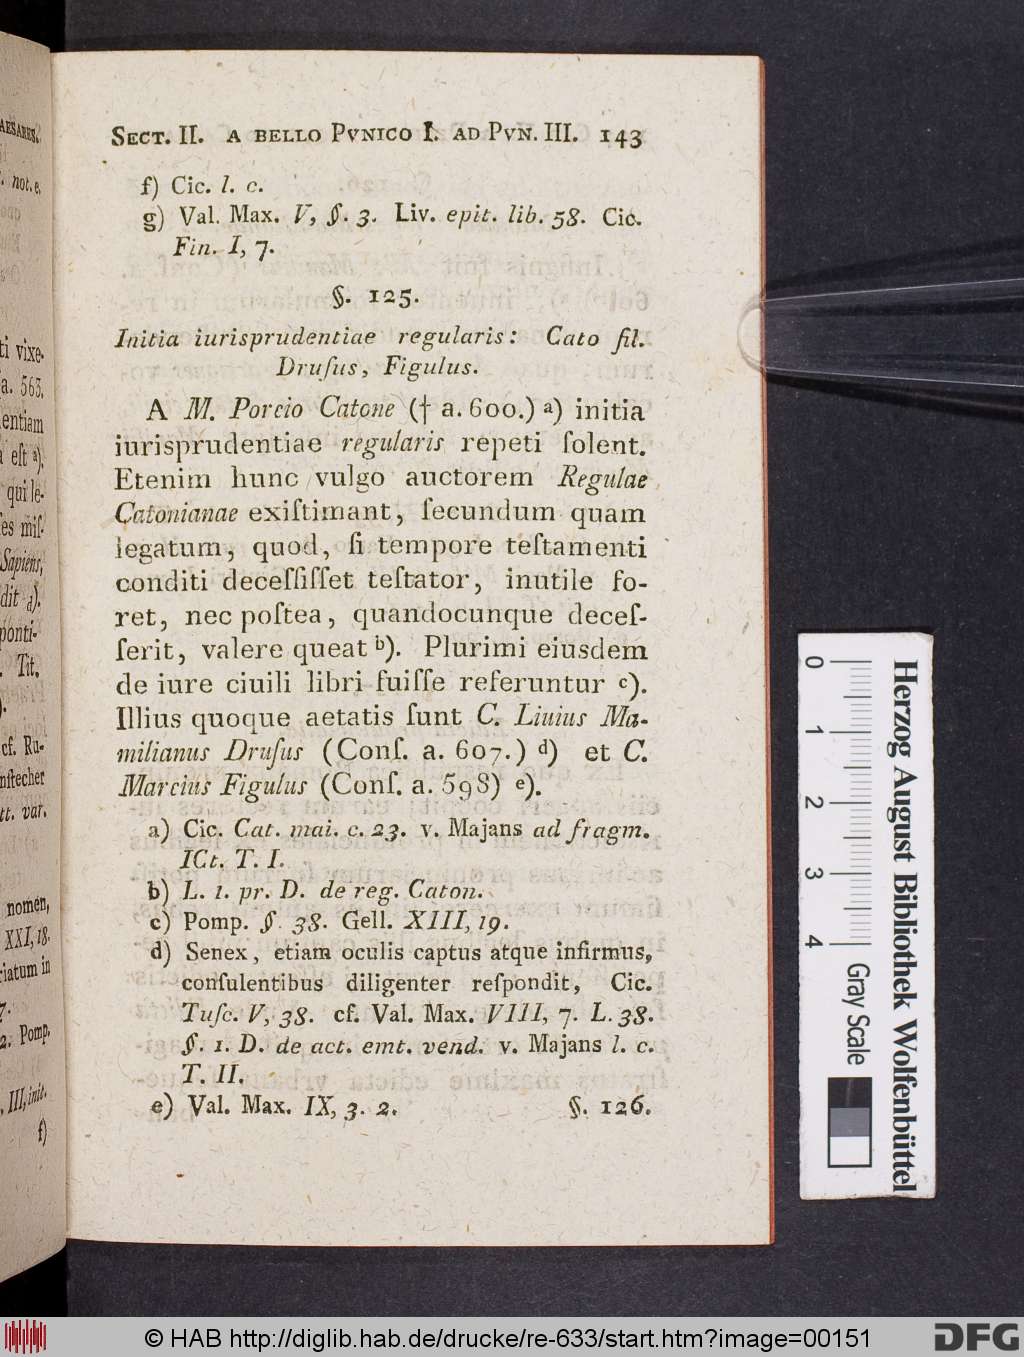 SECT. II. A BELLO PVNICO I. AD PVN. III. 143
f) Cic. l. c.
g) Val. Max. V, §. 3. Liv. epit. lib. 58. Cic.
Fin. I, 7.
§. 125.
Initia iurisprudentiae regularis: Cato fil.
Druſus, Figulus.
A M. Porcio Catone († a. 600.) a) initia
iurisprudentiae regularis repeti ſolent.
Etenim hunc vulgo auctorem Regulae
Catonianae exiſtimant, ſecundum quam
legatum, quod, ſi tempore teſtamenti
conditi deceſſiſſet teſtator, inutile fo-
ret, nec poſtea, quandocunque deceſ-
ſerit, valere queat b). Plurimi eiusdem
de iure ciuili libri fuiſſe referuntur c).
Illius quoque aetatis ſunt C. Liuius Ma-
milianus Druſus (Conſ. a. 607.) d) et C.
Marcius Figulus (Conſ. a. 598) e).
a) Cic. Cat. mai. c. 23. v. Majans ad fragm.
ICt. T. I.
b) L. 1. pr. D. de reg. Caton.
c) Pomp. §. 38. Gell. XIII, 19.
d) Senex, etiam oculis captus atque infirmus,
conſulentibus diligenter reſpondit, Cic.
Tuſc. V, 38. cf. Val. Max. VIII, 7. L. 38.
§. 1. D. de act. emt. vend. v. Majans l. c.
T. II.
e) Val. Max. IX, 3. 2. §. 126.
AESARES.
not. e.
ti vixe-
a. 563.
entiam
eſt a).
qui le-
es miſ-
Sapiens,
dit d).
ponti-
Tit.
cf. Ru-
nſtecher
tt. var.
nomen,
XXI, 18.
riatum in
7.
2. Pomp.
III, init.
f)
0 1 2 3 4
Gray Scale
Herzog August Bibliothek Wolfenbüttel
© HAB http://diglib.hab.de/drucke/re-633/start.htm?image=00151
DFG